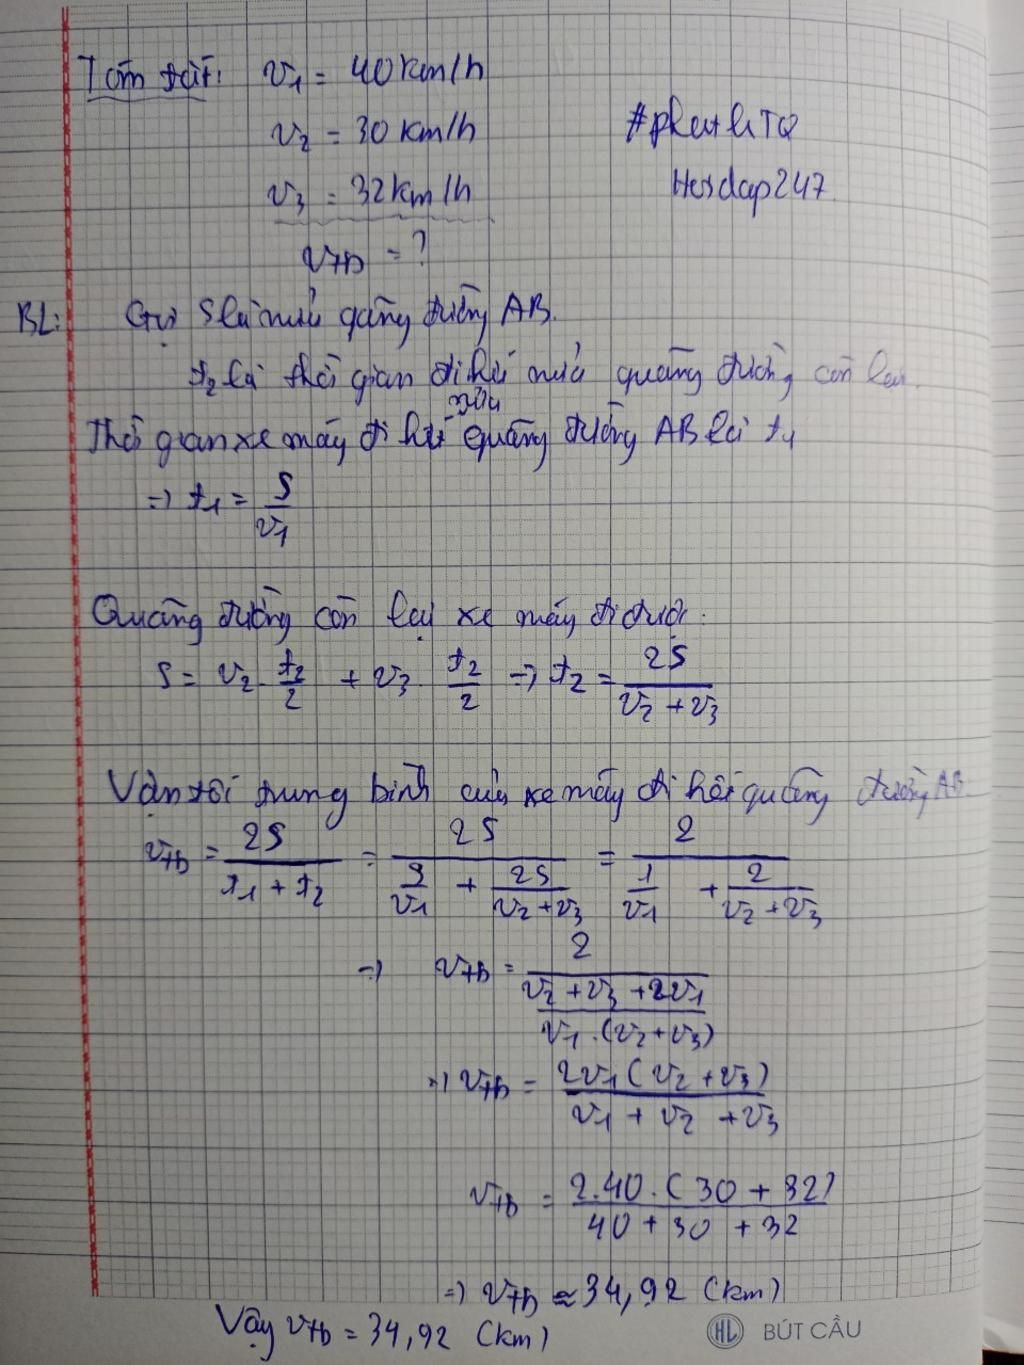 Tóm tắt: v₁ = 40 km/h
v₂ = 30 km/h
#phetkTQ
v₃ = 32 km/h
Hoidap247
vtb = ?
BL: Gọi S là nửa quãng đường AB.
t₂ là thời gian đi hết nửa quãng đường còn lại
nửa
Thời gian xe máy đi hết quãng đường AB là t₁
=> t₁ = S/v₁
Quãng đường còn lại xe máy đi được:
S = v₂ . t₂/2 + v₃ . t₂/2 => t₂ = 2S/(v₂ + v₃)
Vận tốc trung bình của xe máy đi hết quãng đường AB.
vtb = 2S/(t₁ + t₂) = 2S/(S/v₁ + 2S/(v₂ + v₃)) = 2/(1/v₁ + 2/(v₂ + v₃))
=> vtb = 2/((v₂ + v₃ + 2v₁)/(v₁.(v₂ + v₃)))
=> vtb = 2v₁(v₂ + v₃)/(v₁ + v₂ + v₃)
vtb = 2.40.(30 + 32)/(40 + 30 + 32)
=> vtb ≈ 34,92 (km)
Vậy vtb = 34,92 (km)
HL BÚT CẦU